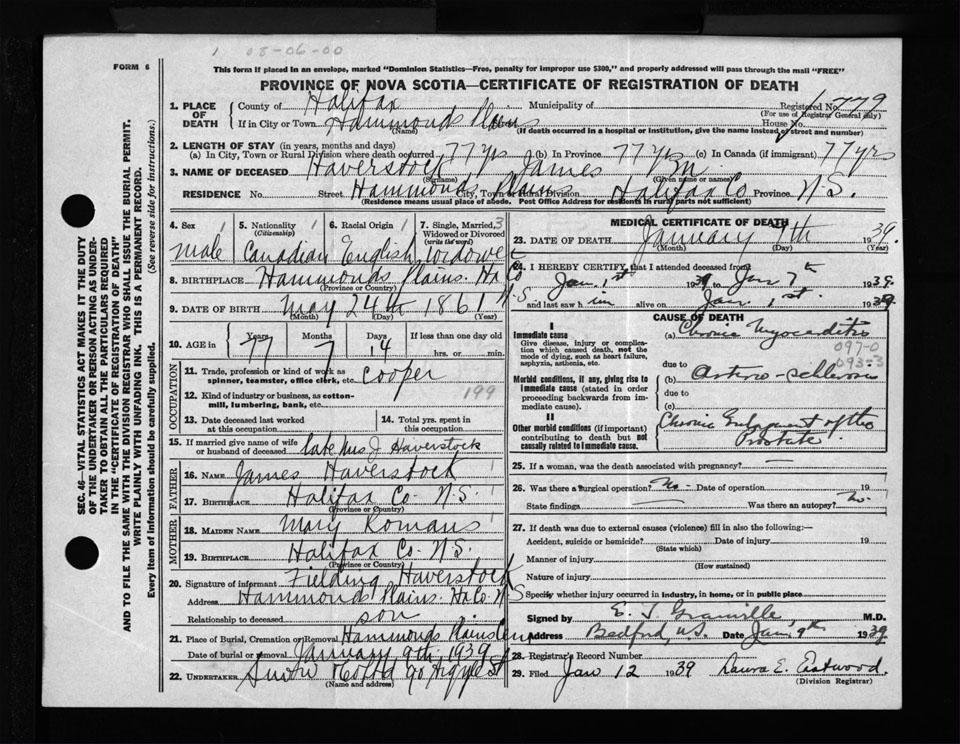 1 08-06-00
FORM 6
This form if placed in an envelope, marked "Dominion Statistics—Free, penalty for improper use $300," and properly addressed will pass through the mail "FREE"
PROVINCE OF NOVA SCOTIA—CERTIFICATE OF REGISTRATION OF DEATH
SEC. 46—VITAL STATISTICS ACT MAKES IT THE DUTY
OF THE UNDERTAKER OR PERSON ACTING AS UNDER-
TAKER TO OBTAIN ALL THE PARTICULARS REQUIRED
IN THE "CERTIFICATE OF REGISTRATION OF DEATH"
AND TO FILE THE SAME WITH THE DIVISION REGISTRAR WHO SHALL ISSUE THE BURIAL PERMIT.
WRITE PLAINLY WITH UNFADING INK. THIS IS A PERMANENT RECORD.
Every item of information should be carefully supplied. (See reverse side for instructions.)
1. PLACE OF DEATH County of Halifax Municipality of Registered No. 1779
(For use of Registrar General only)
If in City or Town Hammonds Plains House No.
(Name) (If death occurred in a hospital or institution, give the name instead of street and number)
2. LENGTH OF STAY (in years, months and days)
(a) In City, Town or Rural Division where death occurred 77 yrs (b) In Province 77 yrs (c) In Canada (if immigrant) 77 yrs
3. NAME OF DECEASED Haverstock James M
(Surname) (Given name or names)
RESIDENCE No. Street Hammonds Plains City, Town or Rural Division Halifax Co Province N.S.
(Residence means usual place of abode. Post Office Address for residents in rural parts not sufficient)
4. Sex 1 5. Nationality 1 (Citizenship) 6. Racial Origin 1 7. Single, Married, 3 Widowed or Divorced (write the word)
male Canadian English Widower
8. BIRTHPLACE Hammonds Plains. Hx Co N.S
(Province or Country)
9. DATE OF BIRTH May 24th 1861
(Month) (Day) (Year)
10. AGE in Years 77 Months 7 Days 14 If less than one day old
hrs. or min.
OCCUPATION
11. Trade, profession or kind of work as spinner, teamster, office clerk, etc. cooper
12. Kind of industry or business, as cotton-mill, lumbering, bank, etc. 199
13. Date deceased last worked at this occupation 14. Total yrs. spent in this occupation
15. If married give name of wife or husband of deceased late Mrs J Haverstock
FATHER
16. NAME James Haverstock
17. BIRTHPLACE Halifax Co. N.S.
(Province or Country)
MOTHER
18. MAIDEN NAME Mary Romans
19. BIRTHPLACE Halifax Co. N.S.
(Province or Country)
20. Signature of informant Fielding Haverstock
Address Hammonds Plains. Ha Co. N.S
Relationship to deceased son
21. Place of Burial, Cremation or Removal Hammonds Plains Cem
Date of burial or removal January 9th. 1939
22. UNDERTAKER 90 Argyle St
(Name and address)
MEDICAL CERTIFICATE OF DEATH
23. DATE OF DEATH January 7th 1939.
(Month) (Day) (Year)
24. I HEREBY CERTIFY that I attended deceased from
Jan. 1st 1939 to Jan 7th 1939
and last saw him alive on Jan. 1st. 1939
CAUSE OF DEATH
I
Immediate cause
Give disease, injury or complication which caused death, not the mode of dying, such as heart failure, asphyxia, asthenia, etc.
(a) Chronic Myocarditis
097-0
093-3
due to
Morbid conditions, if any, giving rise to immediate cause (stated in order proceeding backwards from immediate cause).
(b) Arterio-Schlerosis
due to
(c)
II
Other morbid conditions (if important) contributing to death but not causally related to immediate cause.
Chronic Enlargement of the Prostate.
25. If a woman, was the death associated with pregnancy? —
26. Was there a surgical operation? No- Date of operation 19
State findings Was there an autopsy? No-
27. If death was due to external causes (violence) fill in also the following:—
Accident, suicide or homicide? Date of injury 19
(State which)
Manner of injury
(How sustained)
Nature of injury
Specify whether injury occurred in industry, in home, or in public place
Signed by Granville M.D.
Address Bedford, N.S. Date Jan. 9th 1939
28. Registrar's Record Number
29. Filed Jan 12 1939 Laura E. Eastwood.
(Division Registrar)